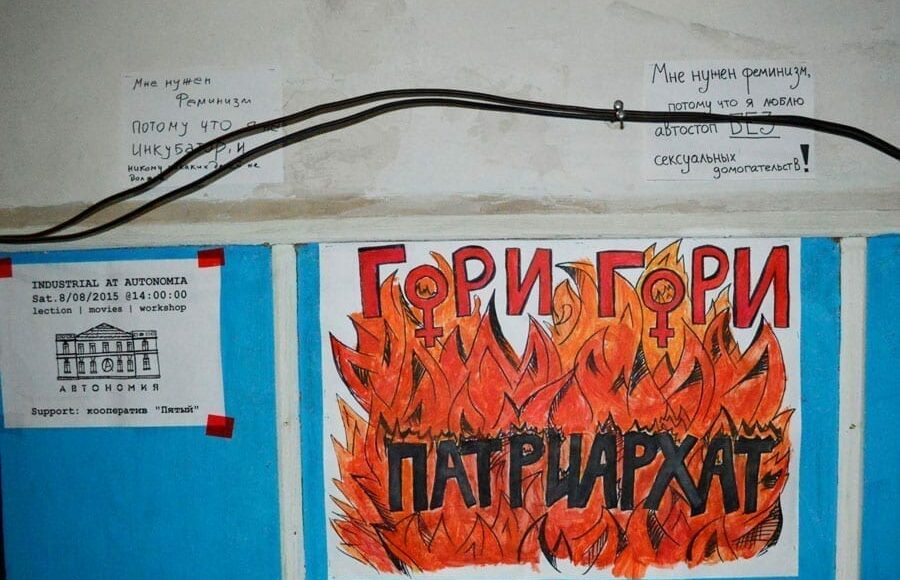 Мне нужен
Феминизм
потому что я не
инкубатор, и
никому никаких детей не
Мне нужен феминизм,
потому что я люблю
автостоп БЕЗ
сексуальных
домогательств!
INDUSTRIAL AT AUTONOMIA
Sat.8/08/2015 @14:00:00
lection | movies | workshop
А
АВТОНОМИЯ
Support: кооператив "Пятый"
ГОРИ ГОРИ
ПАТРИАРХАТ